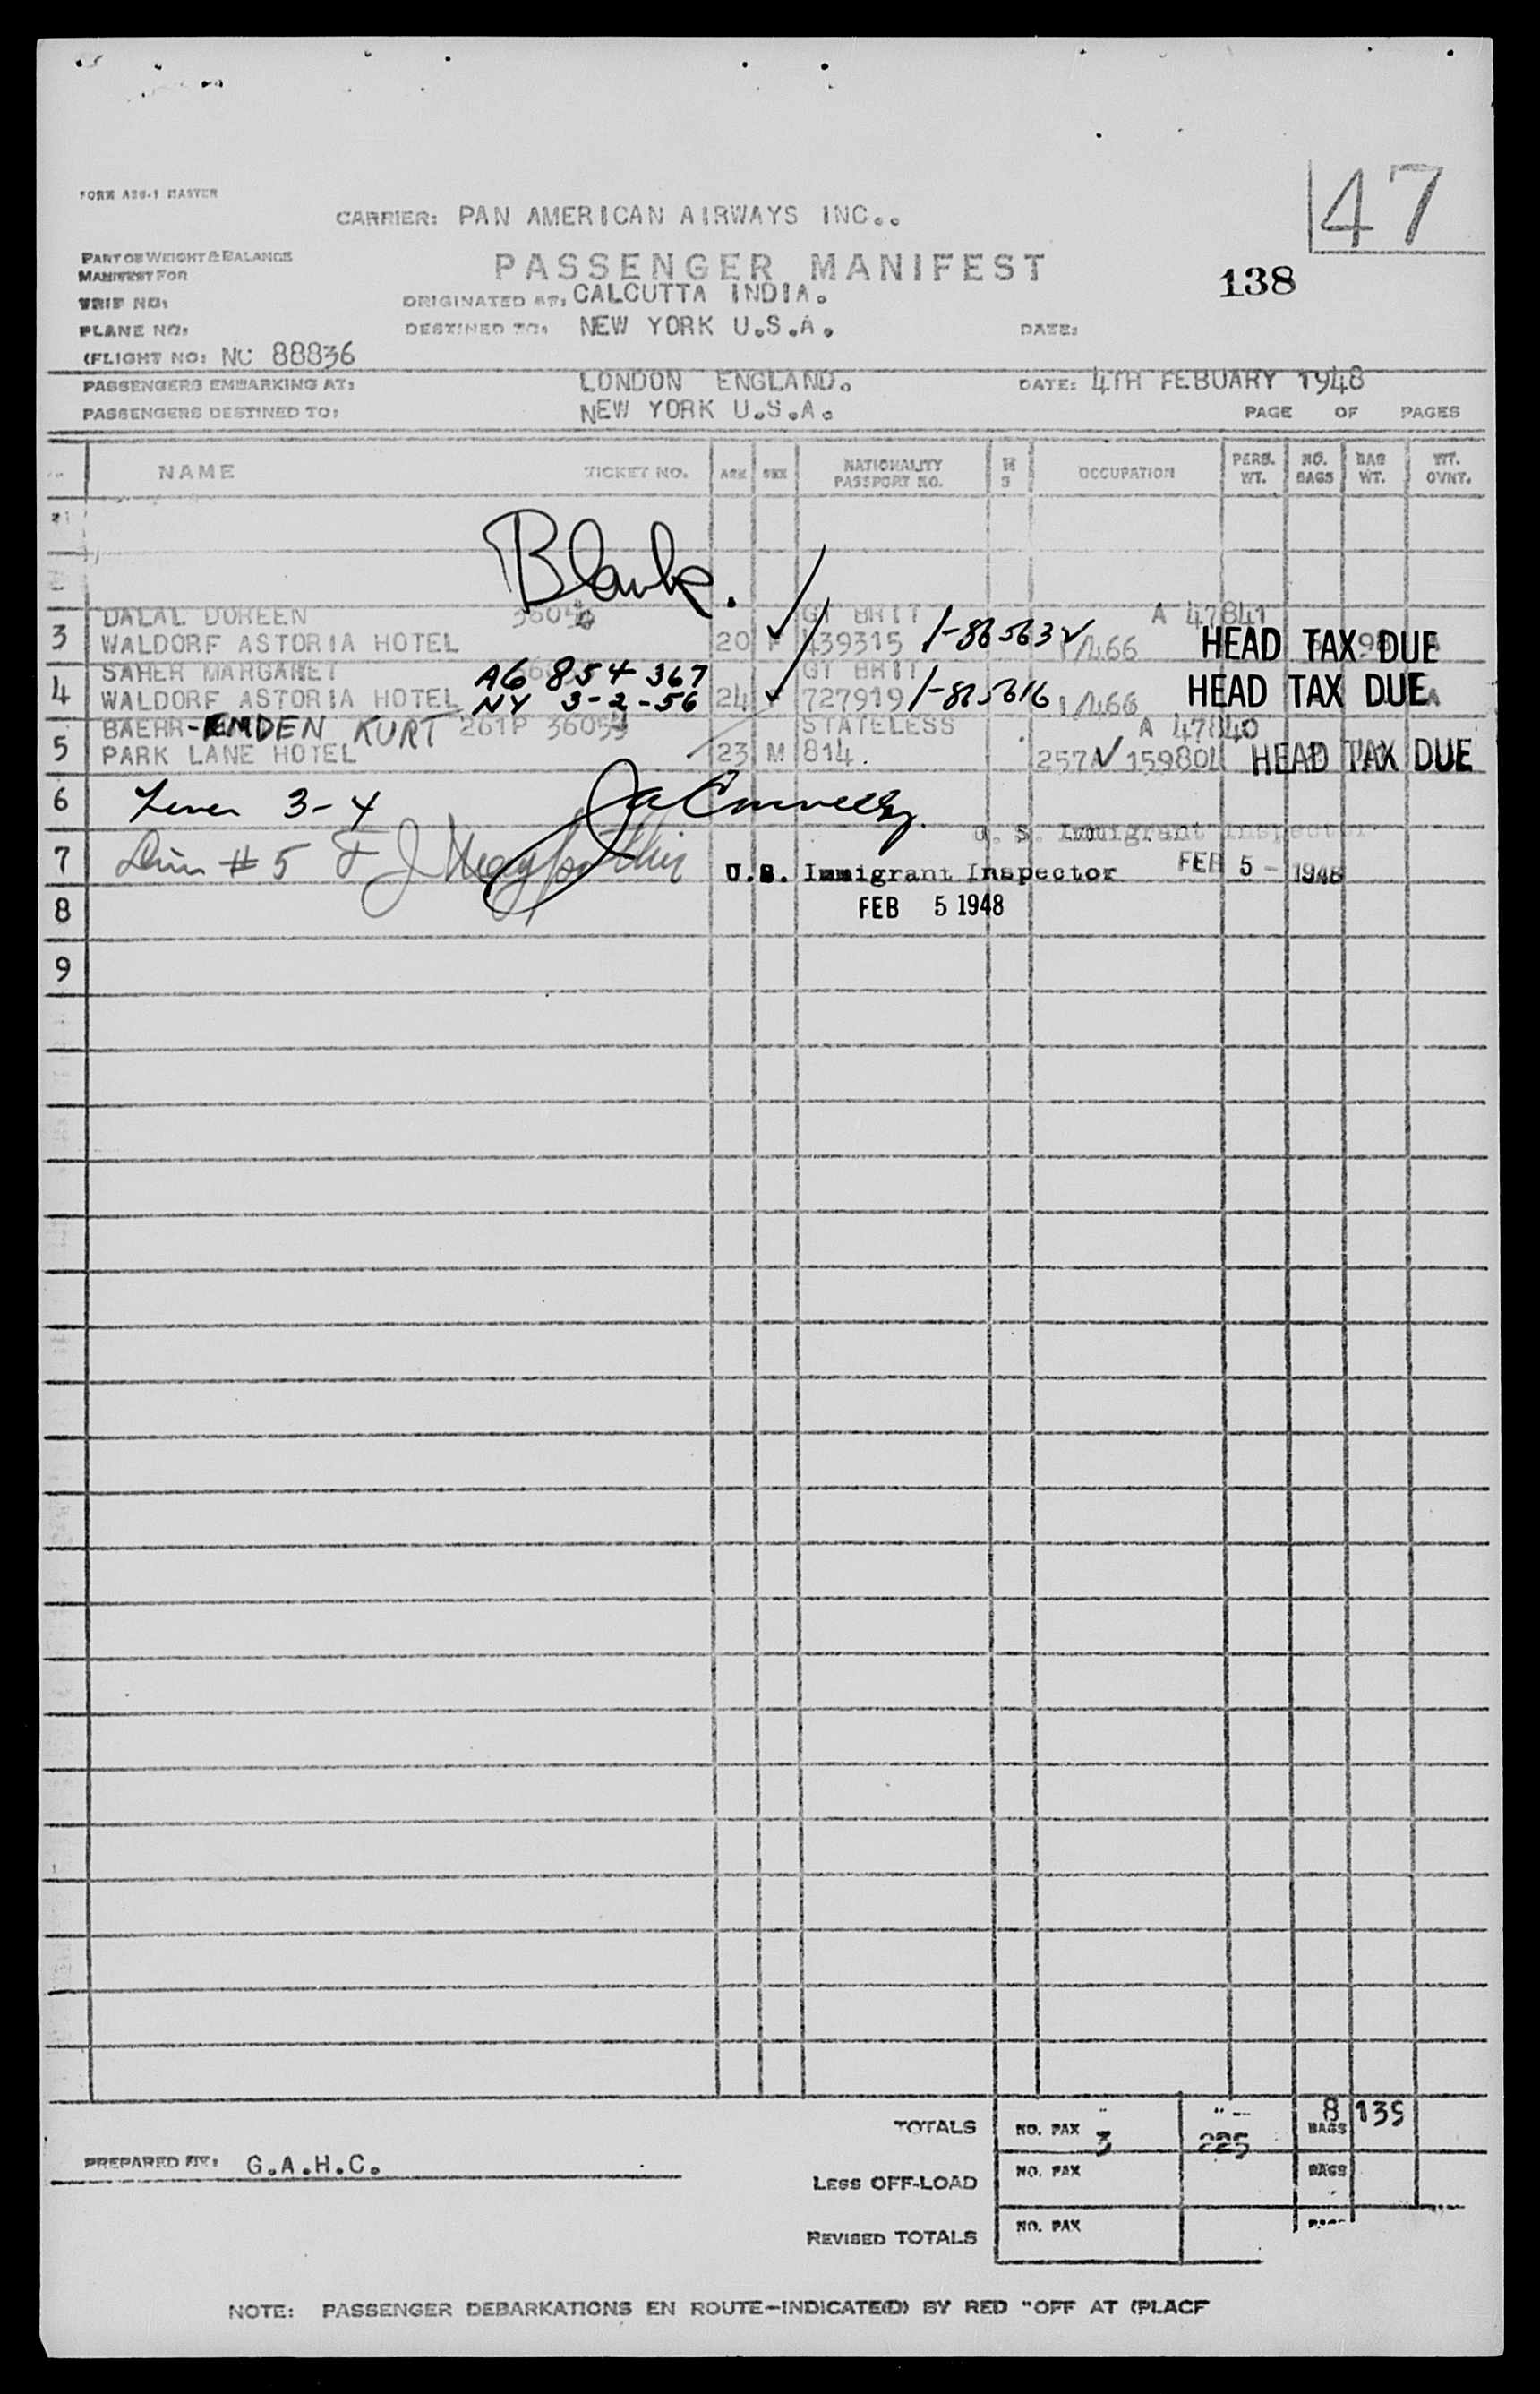 47
FORM ASU-1 MASTER
CARRIER: PAN AMERICAN AIRWAYS INC..
PART OF WEIGHT & BALANCE
MANIFEST FOR
PASSENGER MANIFEST
138
TRIP NO:
ORIGINATED AT: CALCUTTA INDIA.
PLANE NO:
DESTINED TO: NEW YORK U.S.A.
DATE:
(FLIGHT NO: NC 88836
PASSENGERS EMBARKING AT: LONDON ENGLAND. DATE: 4TH FEBUARY 1948
PASSENGERS DESTINED TO: NEW YORK U.S.A. PAGE OF PAGES
NAME TICKET NO. AGE SEX NATIONALITY PASSPORT NO. M S OCCUPATION PERS. WT. NO. BAGS BAG WT. WT. OVNT.
Blank.
DALAL DOREEN GT BRIT A 47841
3 WALDORF ASTORIA HOTEL 20 F 439315 1-865632 1/466 HEAD TAX DUE
SAHER MARGARET A6 854 367 GT BRIT
4 WALDORF ASTORIA HOTEL NY 3-2-56 24 F 727919 1-865616 1/466 HEAD TAX DUE
BAEHR-EMDEN KURT 261P STATELESS A 47840
5 PARK LANE HOTEL 23 M 814. 257A HEAD TAX DUE
6 Lines 3-4
U. S. Immigrant Inspector
7 Line # 5
U.S. Immigrant Inspector FEB 5 - 1948
8 FEB 5 1948
9
TOTALS NO. PAX 3 225 8 BAGS 139
PREPARED BY: G.A.H.C.
LESS OFF-LOAD NO. PAX BAGS
REVISED TOTALS NO. PAX
NOTE: PASSENGER DEBARKATIONS EN ROUTE-INDICATE(D) BY RED "OFF AT (PLACE